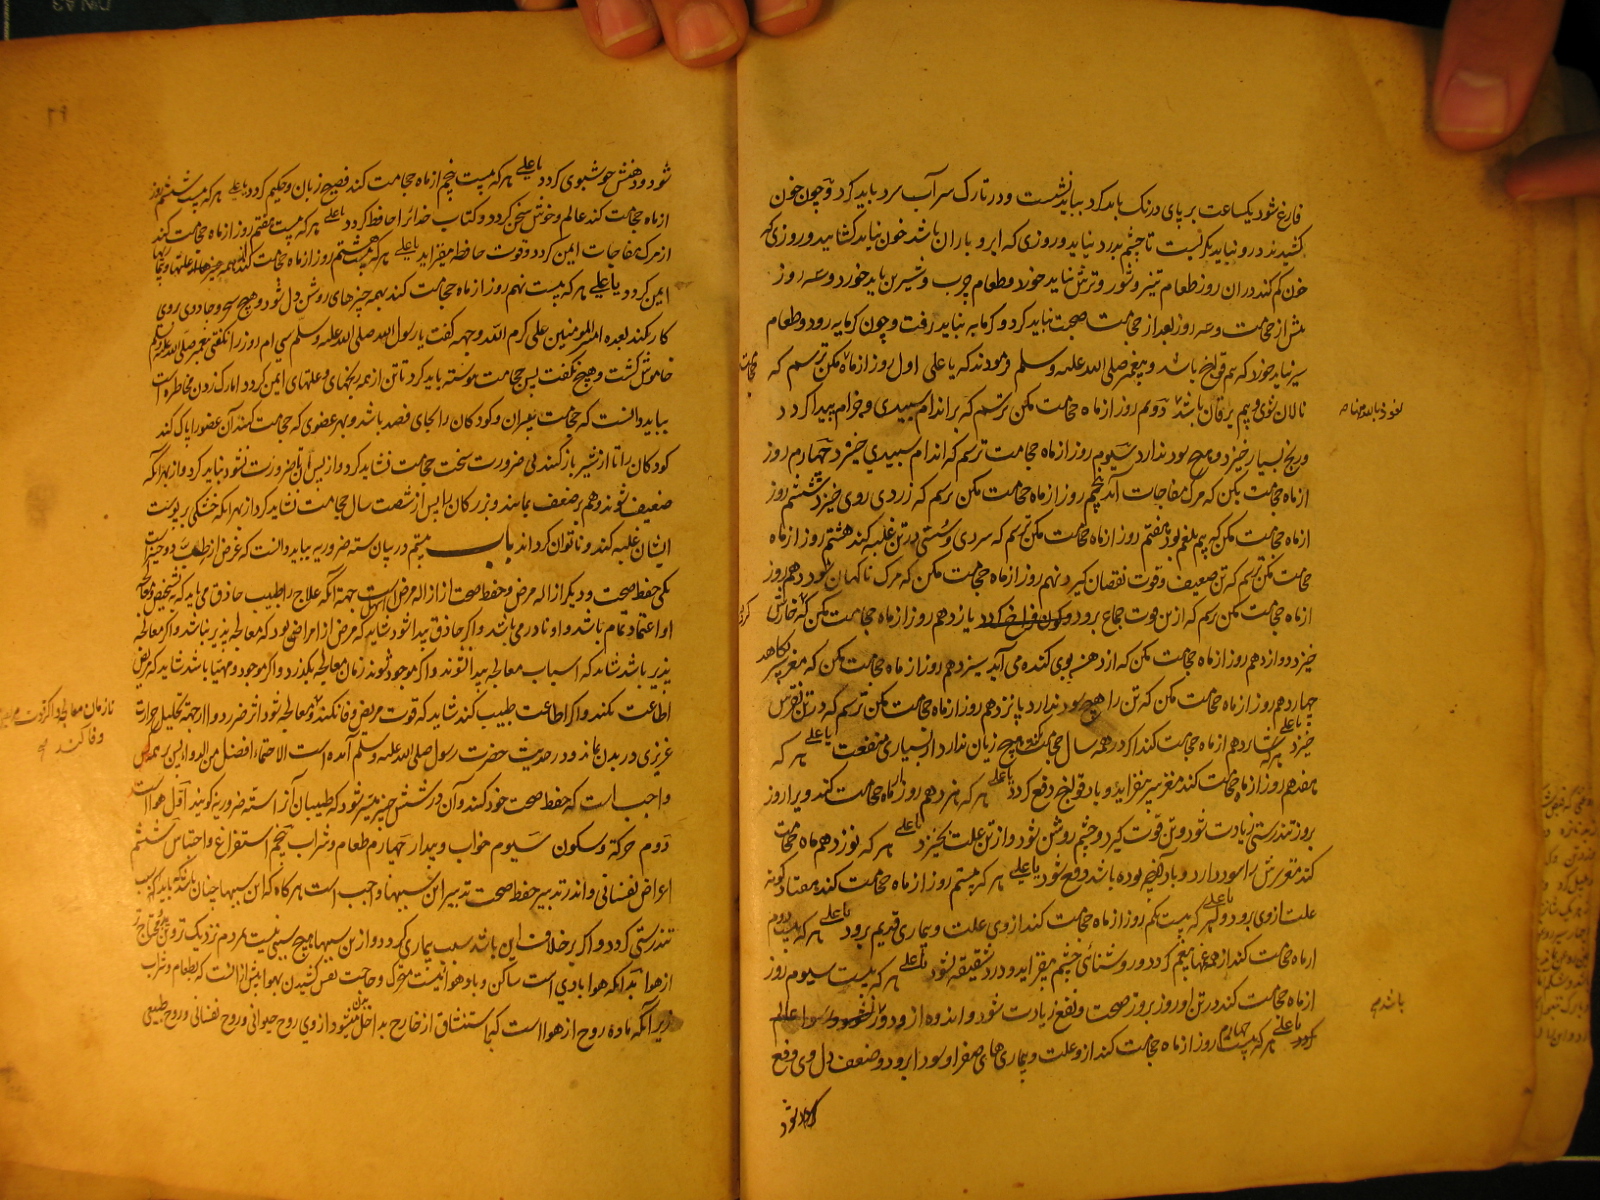 فارغ شود یکساعت بر پای درنک باید کرد بباید نشست و در تارک سر آب سرد باید کرد و چون خون
کشیدند در و نباید نکریست تا چشم بدرد نیاید و روزی که ابر و باران باشد خون نباید کشانید و روزی که
خون کم کند در ان روز طعام تیز و شور و ترش نباید خورد و طعام چرب و شیرین باید خورد و سه روز
پیش از حجامت و سه روز بعد از حجامت صحبت نباید کرد و کرمابه نباید رفت و چون کرمابه رود و طعام
سیر نباید خورد که بیم قولنج باشد و پیغمبر صلی الله علیه وسلم فرمودند که یا علی اول روز از ماه مکن ترسم که
حجامت
نالان شوی و بیم یرقان باشد دوم روز از ماه حجامت مکن ترسم که بر اندام سپیدی و جزام پیدا کردد
نعوذ بالله منها
و رنج بسیار خیزد و هیچ سود ندارد سیوم روز از ماه حجامت ترسم که اندام سپیدی خیزد چهارم روز
از ماه حجامت مکن که مرک مفاجات آید پنجم روز از ماه حجامت مکن ترسم که زردی روی خیزد ششم روز
از ماه حجامت مکن که بیم بلغم بود هفتم روز از ماه حجامت مکن ترسم که سردی و سستی در تن غلبه کند هشتم روز از ماه
حجامت مکن ترسم که تن ضعیف و قوت نقصان کیرد نهم روز از ماه حجامت مکن که مرک ناکهان بود دهم روز
از ماه حجامت مکن ترسم که ازین قوت جماع برود یازدهم روز از ماه حجامت مکن که خارش
خیزد دوازدهم روز از ماه حجامت مکن که از دهن بوی کنده می آید سیزدهم روز از ماه حجامت مکن که مغز سر بکاهد
چهاردهم روز از ماه حجامت مکن که تن را هیچ سود ندارد پانزدهم روز از ماه حجامت مکن ترسم که در تن نقرس
خیزد یا علی هرکه شانزدهم از ماه حجامت کند اکر در همه سال حجامت نکند هیچ زیان ندارد از بسیاری منفعت یا علی هرکه
هفدهم روز از ماه حجامت کند مغز سر بیفزاید و باد قولنج دفع کردد یا علی هرکه هژدهم روز از ماه حجامت کند ویرا روز
بروز تندرستی زیادت شود و تن قوت کیرد و چشم روشن شود و از تن علت بخیزد یا علی هرکه نوزدهم ماه حجامت
کند موی سرش را سود دارد و باد آنچه بوده باشد دفع شود یا علی هرکه بیستم روز از ماه حجامت کند هفتاد کونه
علت از وی برود یا علی هرکه بیست یکم روز از ماه حجامت کند از وی علت و بیماری قدیم برود یا علی هرکه بیست دوم
از ماه حجامت کند از همه غمها بیغم کردد و روشنائی چشم بیفزاید و درد شقیقه شود یا علی هرکه بیست سیوم روز
از ماه حجامت کند در تن او روز بروز صحت و نفع زیادت شود و اندوه از و دور
باشد
یا علی هرکه بیست چهارم روز از ماه حجامت کند از و علت و بیماری های صفرا و سودا برود و ضعف دل وی دفع
شود
شود و دهنش خوشبوی کردد یا علی هرکه بیست پنجم از ماه حجامت کند فصیح زبان و حکیم کردد یا علی هرکه بیست ششم روز
از ماه حجامت کند عالم و خوش سخن کردد و کتاب خدائرا حافظ کردد یا علی هرکه بیست هفتم روز از ماه حجامت کند
از مرک مفاجات ایمن کردد و قوت حافظه بیفزاید یا علی هرکه بیست هشتم روز از ماه حجامت کند از همه علتها و
ایمن کردد یا علی هرکه بیست نهم روز از ماه حجامت کند بهمه چیزهای روشن دل شود و هیچ سحر و جادوی روی
کار نکند بعده امیر المومنین علی کرم الله وجهه کفت یا رسول الله صلی الله علیه وسلم سی ام روز را نکفتی پیغمبر صلی الله علیه وسلم
خاموش کشت و هیچ نکفت پس حجامت پیوسته باید کرد تا تن از همه رنجهای و علتهای ایمن کردد اما رک زدن مخاطره است
بباید دانست که حجامت پسران و کودکان را بجای فصد باشد و بهر عضوی که حجامت کنند آن عضو را پاک کند
کودکان را تا از شیر باز نکنند بی ضرورت سخت حجامت نشاید کرد و از پس آن تا ضرورت نشود نباید کرد و از بهر آنکه
ضعیف شوند و هم بر ضعف بمانند و بزرکان را پس از شصت سال حجامت نشاید کرد از بهر انکه خشکی بر پوست
ایشان غلبه کند و ناتوان کرداند باب بیستم در بیان سته ضروریه بباید دانست که غرض از طب دو چیز است
یکی حفظ صحت و دیکر ازاله مرض و حفظ صحت از ازاله مرض اسهل است جهة آنکه علاج را طبیب حاذق می باید که تشخیص
او اعتماد تمام باشد و او نادر می باشد و اکر حاذق پیدا شود شاید که مرض از امراضی بود که معالجه پذیر نباشد و اکر معالجه
پذیر باشد شاید که اسباب معالجه پیدا نشوند و اکر موجود شوند زمان معالجه بکذرد و اکر موجود و مهیا باشد شاید که مریض
اطاعت نکند و اکر اطاعت طبیب کند شاید که قوت مریض وفا نکند و معالجه شود اثر ضرر دوا از جهة تحلیل حرارت
تا زمان معالجه و اکر قوت مریض
وفا کند
غریزی در بدن بماند و در حدیث حضرت رسول صلی الله علیه وسلم آمده است الاحتماء افضل من الدواء پس بر همه کس
واجب است که حفظ صحت خود کنند و آن در شش چیز میسر شود که طبیبان آنرا سته ضروریه کویند اول هوا است
دوم حرکة و سکون سیوم خواب و بیدار چهارم طعام و شراب پنجم استفراغ و احتباس ششم
اعراض نفسانی و اندر تدبیر حفظ صحت تدبیر این سببها واجب است هرکاه که این سببها چنان باشد که باید سبب
تندرستی کردد و اکر بر خلاف این باشد سبب بیماری کردد و ازین سببها هیچ سببی نیست بمردم نزدیک تر و محتاج تر
از هوا بدانکه هوا بادی است ساکن و باد هوائیست متحرک و حاجت نفس کشیدن بهوا بیش از انست که بطعام و شراب
زیرا آنکه ماده روح از هوا است که باستنشاق از خارج بداخل بدن میشود و از وی روح حیوانی و روح نفسانی و روح طبیعی